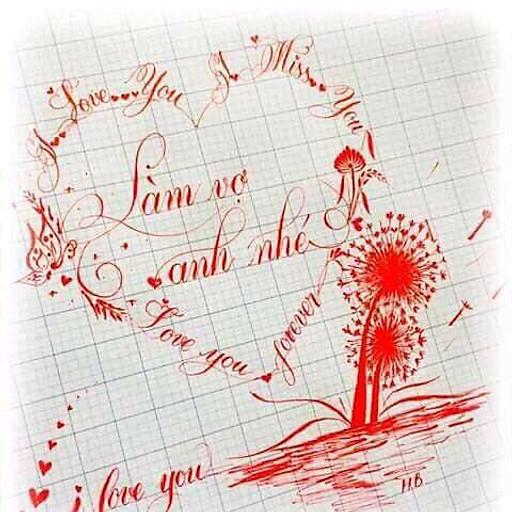 I Love You I Miss You
Làm vợ
anh nhé
Love you forever
i love you
H.B.